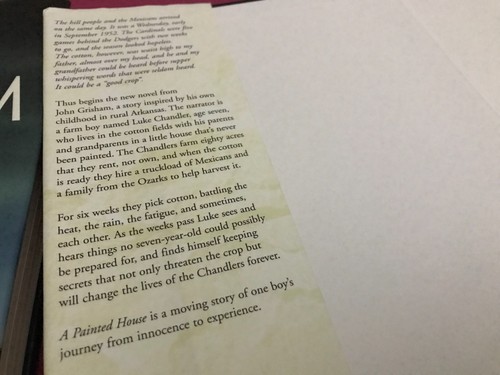 The hill people and the Mexicans arrived
on the same day. It was a Wednesday, early
in September 1952. The Cardinals were five
games behind the Dodgers with two weeks
to go, and the season looked hopeless.
The cotton, however, was waist high to my
father, almost over my head, and he and my
grandfather could be heard before supper
whispering words that were seldom heard.
It could be a "good crop".
Thus begins the new novel from
John Grisham, a story inspired by his own
childhood in rural Arkansas. The narrator is
a farm boy named Luke Chandler, age seven,
who lives in the cotton fields with his parents
and grandparents in a little house that's never
been painted. The Chandlers farm eighty acres
that they rent, not own, and when the cotton
is ready they hire a truckload of Mexicans and
a family from the Ozarks to help harvest it.
For six weeks they pick cotton, battling the
heat, the rain, the fatigue, and, sometimes,
each other. As the weeks pass Luke sees and
hears things no seven-year-old could possibly
be prepared for, and finds himself keeping
secrets that not only threaten the crop but
will change the lives of the Chandlers forever.
A Painted House is a moving story of one boy's
journey from innocence to experience.
M